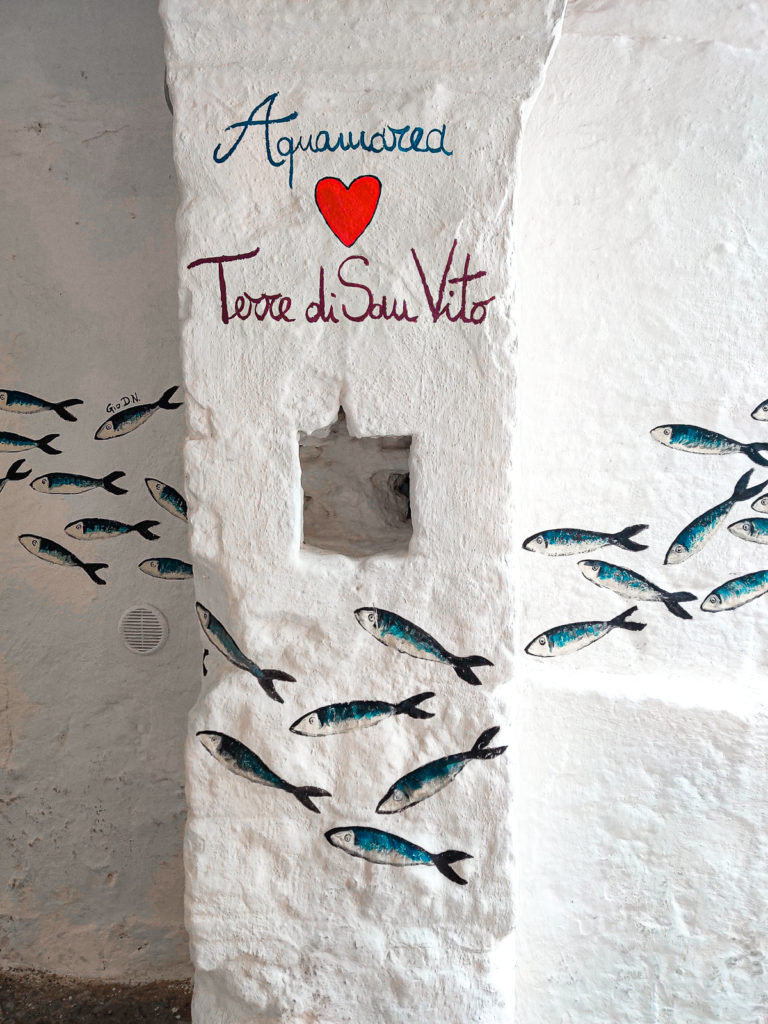 Aquamarea
Terre di San Vito
Gio D.N.